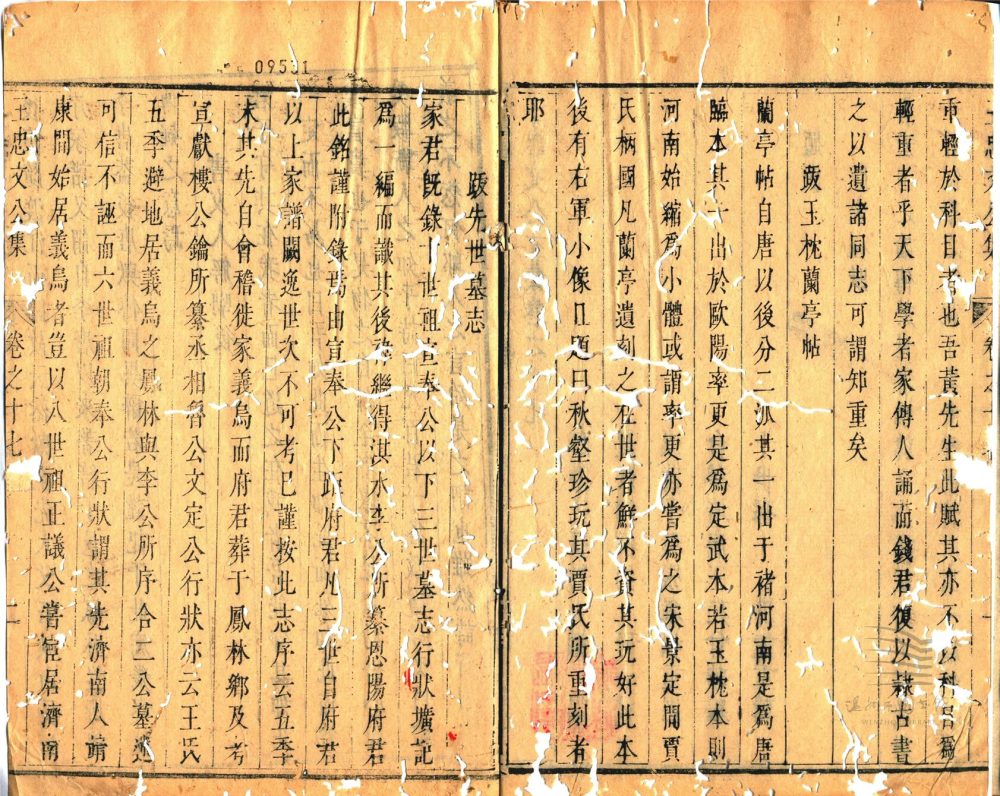 重輕於科目者也吾黃先生此賦其亦不以科目爲
輕重者乎天下學者家傳人誦而錢君復以隷古書
之以遺諸同志可謂知重矣
跋玉枕蘭亭帖
蘭亭帖自唐以後分二派其一出于褚河南是爲唐
臨本其一出於歐陽率更是爲定武本若玉枕本則
河南始縮爲小體或謂率更亦嘗爲之宋景定間賈
氏柄國凡蘭亭遺刻之在世者鮮不資其玩好此本
後有右軍小像且題曰秋壑珍玩其賈氏所重刻者
耶
跋先世墓志
家君旣錄十世祖宣奉公以下三世墓志行狀壙記
爲一編而識其後禕繼得洪水李公所纂恩陽府君
此銘謹附錄焉由宣奉公下距府君凡三世自府君
以上家譜闕逸世次不可考已謹按此志序云五季
末其先自會稽徙家義烏而府君葬于鳳林鄉及考
宣獻樓公鑰所纂丞相魯公文定公行狀亦云王氏
五季避地居義烏之鳳林與李公所序合二公墓述
可信不誣而六世祖朝奉公行狀謂其先濟南人靖
康間始居義烏者豈以八世祖正議公嘗宦居濟南
王忠文公集 卷之十七
09531